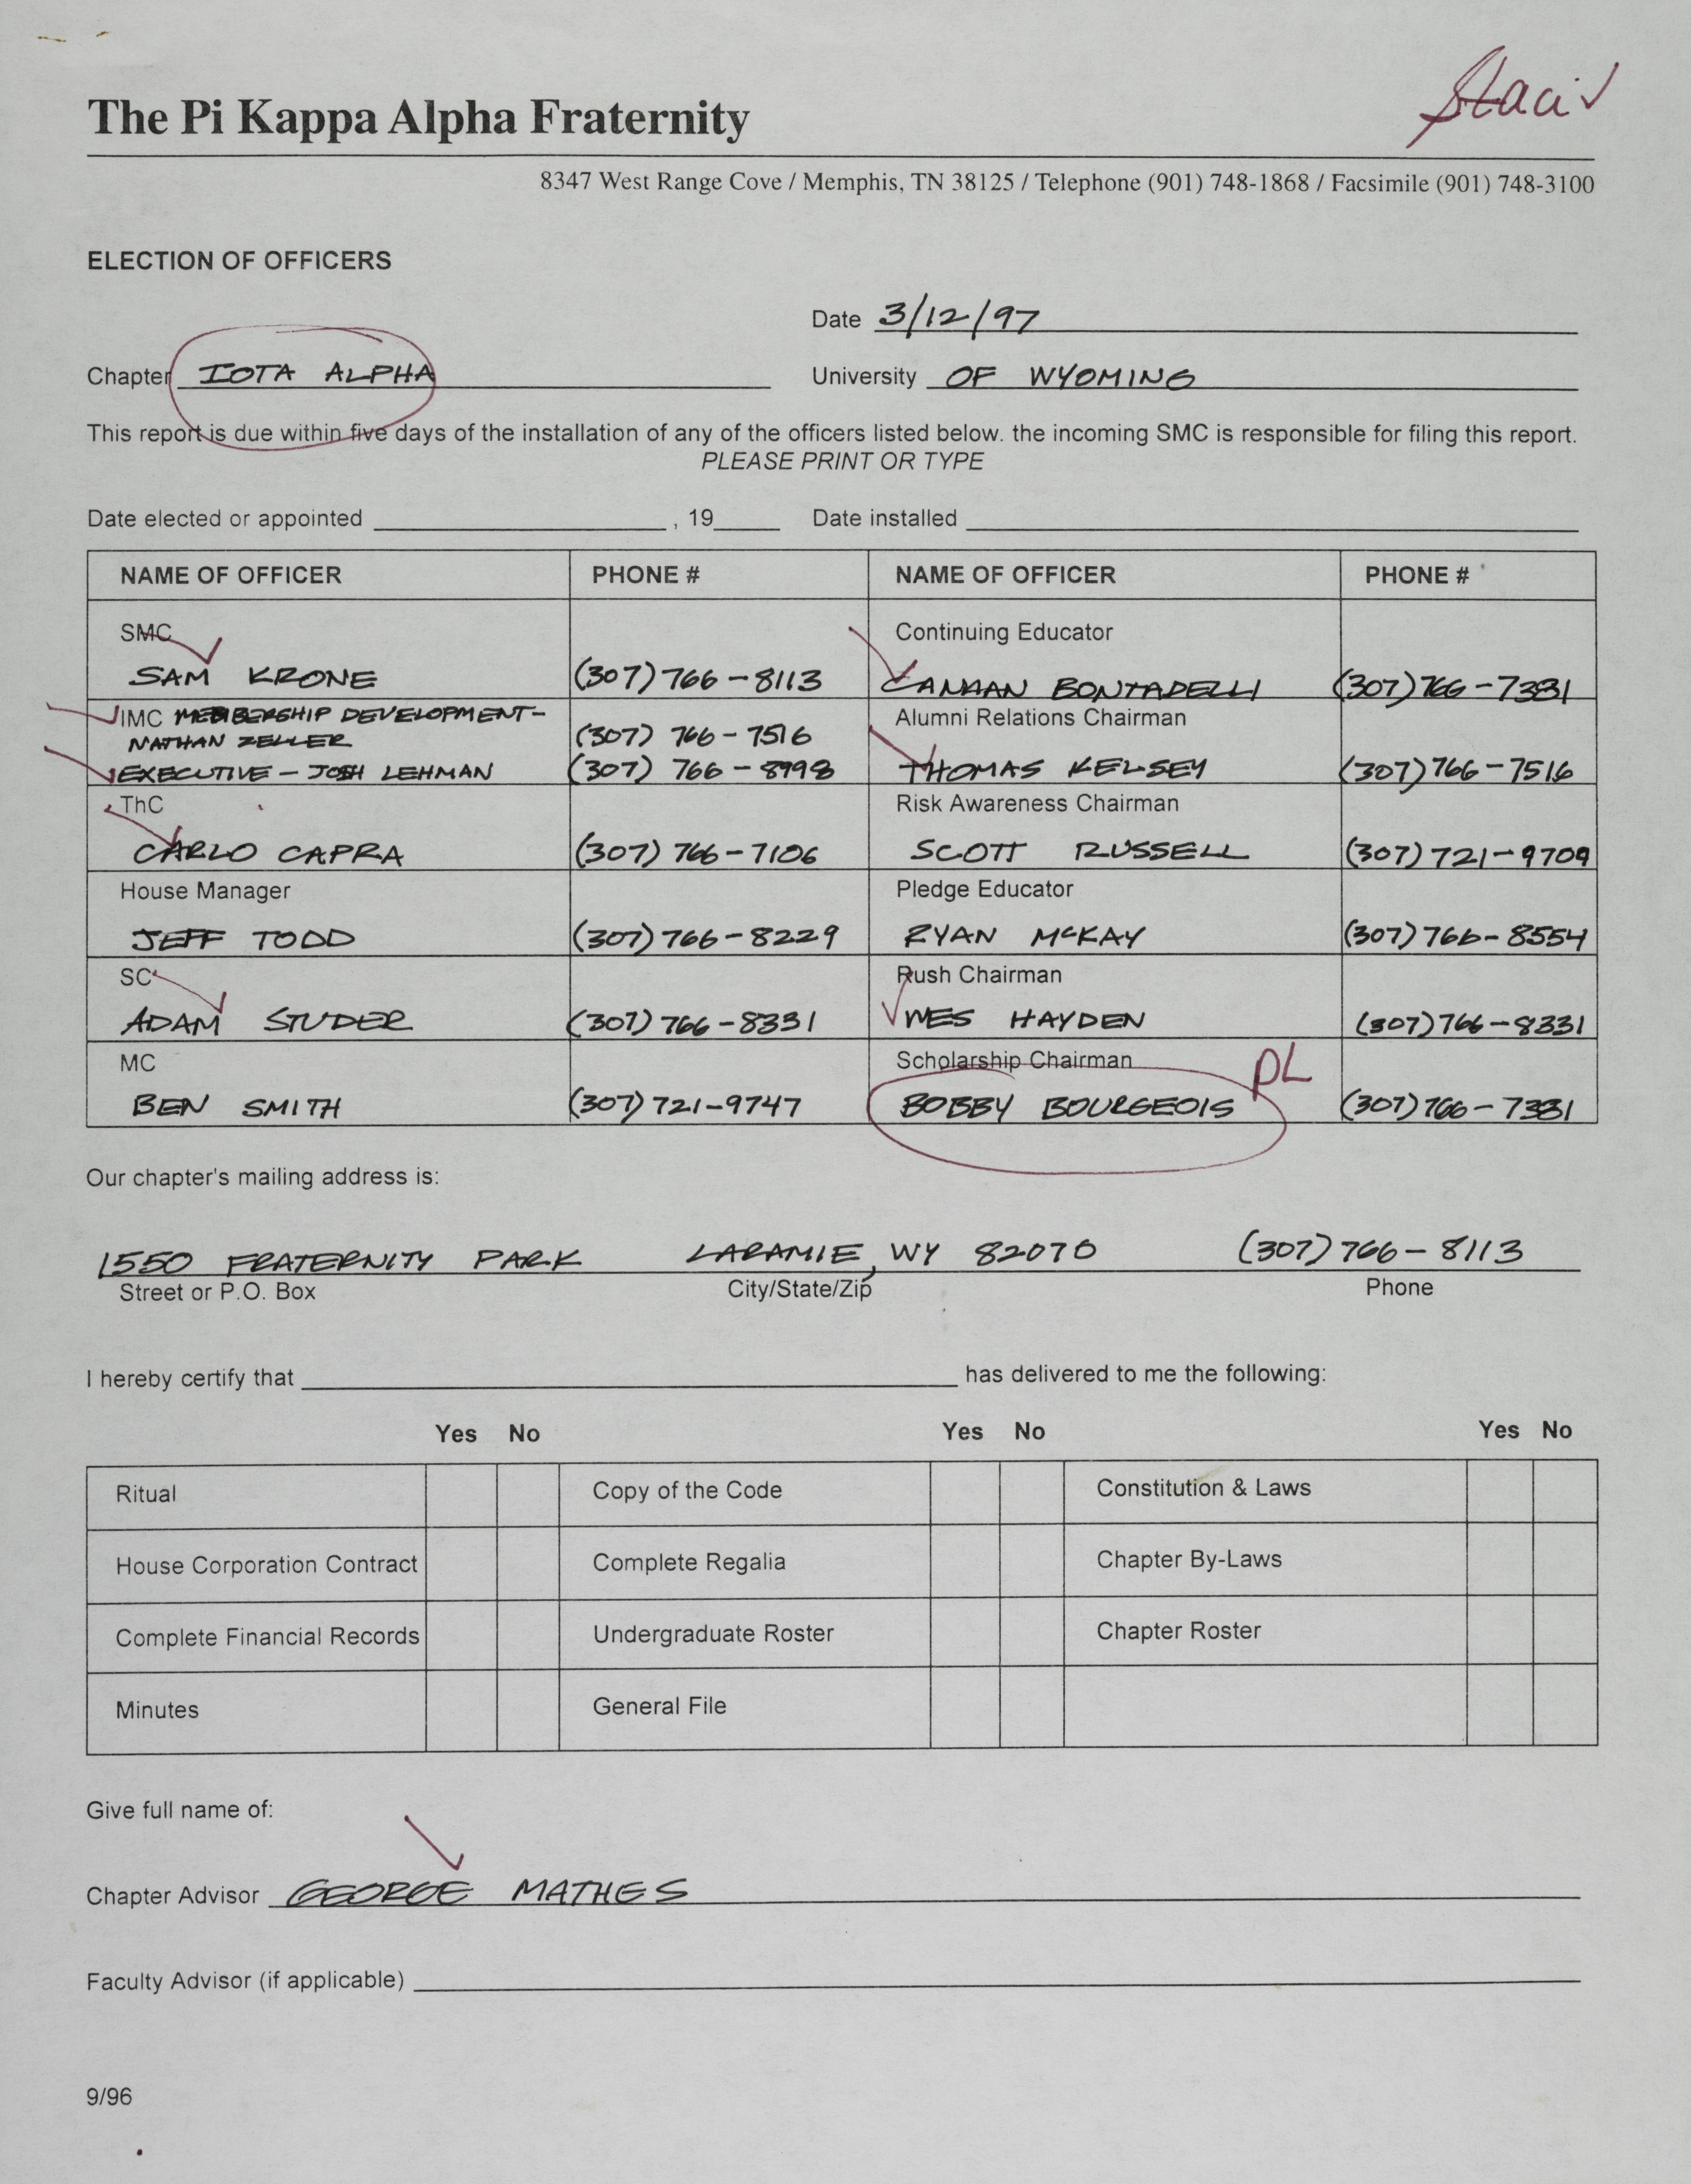 Staci
The Pi Kappa Alpha Fraternity
8347 West Range Cove / Memphis, TN 38125 / Telephone (901) 748-1868 / Facsimile (901) 748-3100
ELECTION OF OFFICERS
Date 3/12/97
Chapter IOTA ALPHA University OF WYOMING
This report is due within five days of the installation of any of the officers listed below. the incoming SMC is responsible for filing this report.
PLEASE PRINT OR TYPE
Date elected or appointed , 19 Date installed
NAME OF OFFICER PHONE # NAME OF OFFICER PHONE #
SMC Continuing Educator
SAM KRONE (307) 766-8113 CANAAN BONTADELLI (307) 766-7381
IMC MEMBERSHIP DEVELOPMENT- Alumni Relations Chairman
NATHAN ZELLER (307) 766-7516
EXECUTIVE - JOSH LEHMAN (307) 766-8998 THOMAS KELSEY (307) 766-7516
ThC Risk Awareness Chairman
CARLO CAPRA (307) 766-7106 SCOTT RUSSELL (307) 721-9709
House Manager Pledge Educator
JEFF TODD (307) 766-8229 RYAN McKAY (307) 766-8554
SC Rush Chairman
ADAM STUDER (307) 766-8331 WES HAYDEN (307) 766-8331
MC Scholarship Chairman PL
BEN SMITH (307) 721-9747 BOBBY BOURGEOIS (307) 766-7381
Our chapter's mailing address is:
1550 FRATERNITY PARK LARAMIE, WY 82070 (307) 766-8113
Street or P.O. Box City/State/Zip Phone
I hereby certify that has delivered to me the following:
Yes No Yes No Yes No
Ritual Copy of the Code Constitution & Laws
House Corporation Contract Complete Regalia Chapter By-Laws
Complete Financial Records Undergraduate Roster Chapter Roster
Minutes General File
Give full name of:
Chapter Advisor GEORGE MATHES
Faculty Advisor (if applicable)
9/96